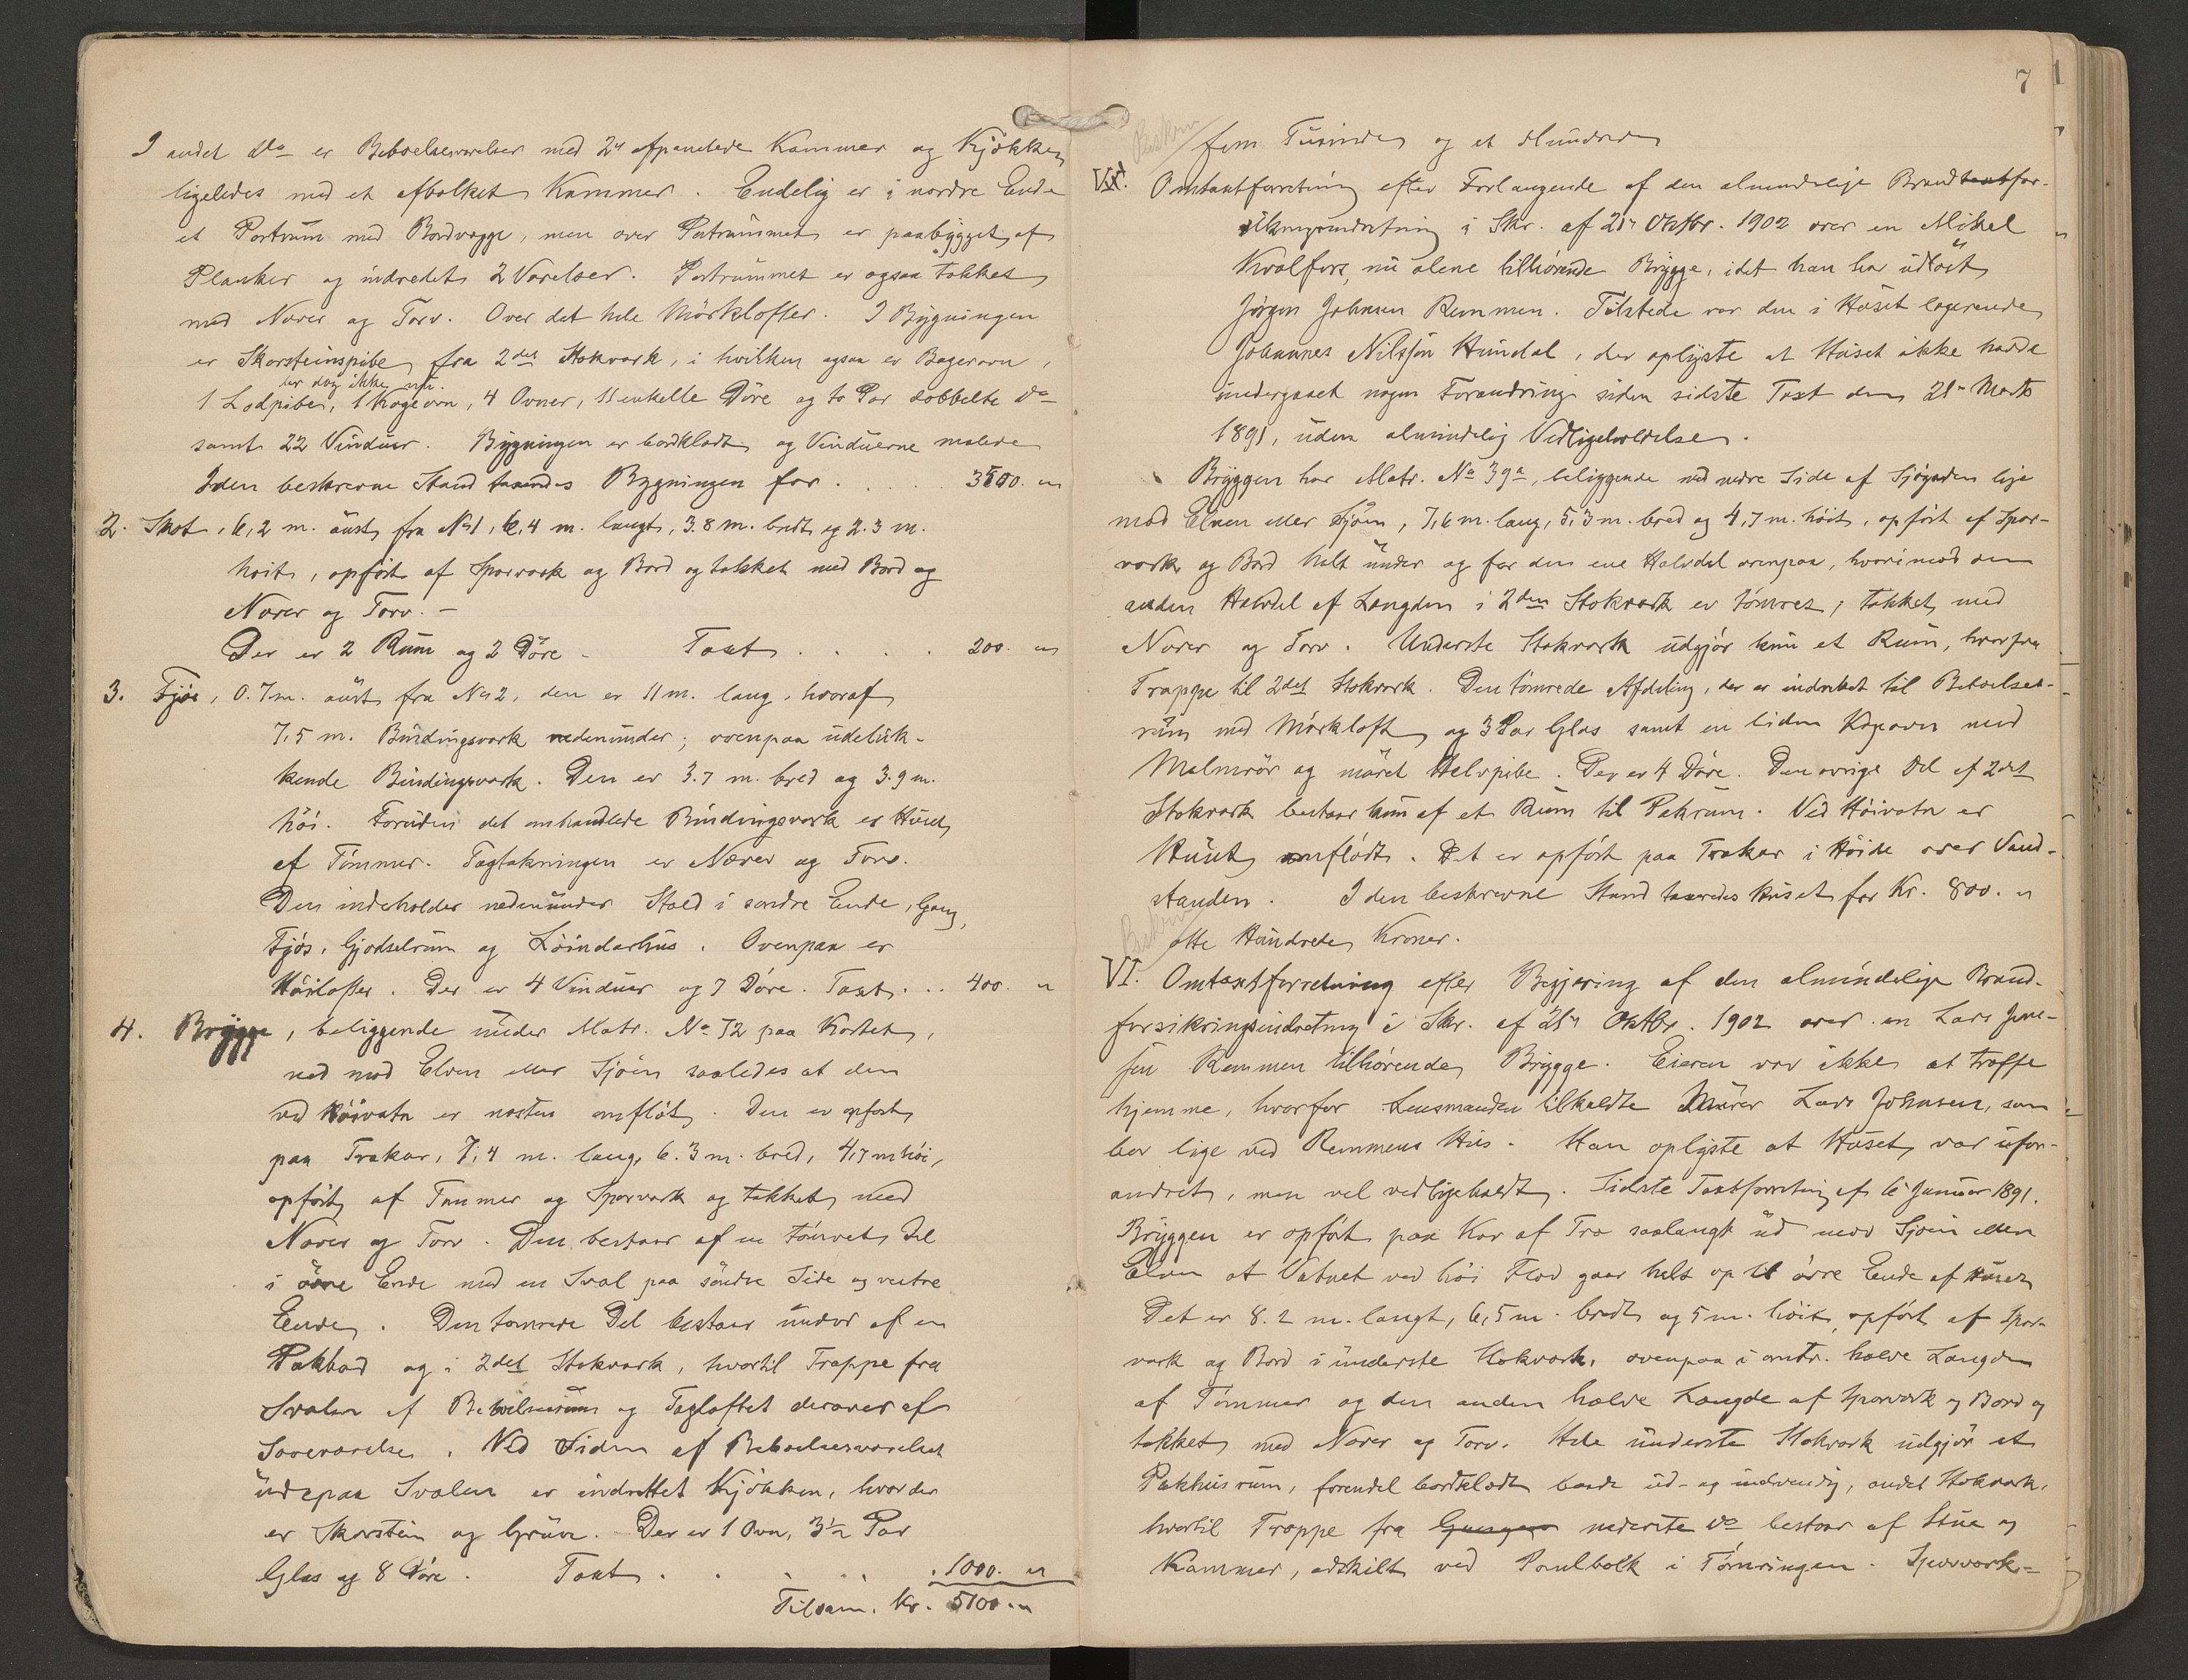 I andet do er Beboelsesværelser med 2de afpanelede Kammer og Kjøkken
ligeledes med et afbolket Kammer. Endelig er i nordre Ende
et Portrum med Bordvægge, men over Portrummet er paabygget af
Planker og indredet 2 Værelser. Portrummet er ogsaa takket
med Næver og Torv. Over det hele Mørklofter. I Bygningen
er Skorsteinspibe fra 2det Stokværk, i hvilken ogsaa er Bagerovn,
er dog ikke nu.
1 Lodpibe, 1 Kogeovn, 4 Ovner, 11 enkelte Døre og to Par dobbelte do
samt 22 Vinduer. Bygningen er bordklædt og Vinduerne malede
I den beskrevne Stand taxeredes Bygningen for . . . . 3500. "
2. Skot, 6,2 m. aust fra No 1, 6,4 m. langt, 3.8 m. bredt og 2.3 m.
høit, opført af Sporværk og Bord og takket med Bord og
Næver og Torv. —
Der er 2 Rum og 2 Døre - Taxt . . . . 200. "
3. Fjøs, 0.7 m. aust fra No 2, den er 11 m. lang, hvoraf
7,5 m. Bindingsværk nedenunder; ovenpaa udeluk-
kende Bindingsværk. Den er 3.7 m. bred og 3.9 m.
høi. Foruden det omhandlede Bindingsværk er Huset
af Tømmer. Tagtækningen er Næver og Torv.
Den indeholder nedenunder Stald i søndre Ende, Gang,
Fjøs, Gjødselrum og Løindarhus. Ovenpaa er
Høilofter. Der er 4 Vinduer og 7 Døre. Taxt . . . 400. "
4. Brygge, beliggende under Matr. No 72 paa Kartet,
ned mod Elven eller Sjøen saaledes at den
ved Høivatn er næsten omflødt. Den er opført
paa Trækar, 7,4 m. lang, 6.3 m. bred, 4,7 m høi,
opført af Tømmer og Sporværk og takket med
Næver og Torv. Den bestaar af en tømret Del
i øvre Ende med en Sval paa søndre Side og vestre
Ende. Den tømrede Del bestaar under af en
Pakbod og i 2det Stokværk, hvortil Trappe fra
Svalen af Beboelsesrum og Tagloftet derover af
Soveværelse. Ved Siden af Beboelsesværelset
udepaa Svalen er indrettet Kjøkken, hvor der
er Skorstein og Gruve. Der er 1 Ovn, 3 1/2 Par
Glas og 8 Døre. Taxt . . . . . 1000. "
Tilsam. Kr. 5100. "
7
Beskrev
fem Tusinde og et Hundrede
V. Omtaxtforretning efter Forlangende af den almindelige Brandtaxtfor-
sikringsindretning i Skr. af 25de Oktbr. 1902 over en Mikel
Kvalfors, nu alene tilhørende Brygge, idet han har udløst
Jørgen Johnsen Remmen. Tilstede var den i Huset logerende
Johannes Nilssøn Hundal, der oplyste at Huset ikke havde
undergaaet nogen Forandring siden sidste Taxt den 21de Marts
1891, uden almindelig Vedligeholdelse.
Bryggen har Matr. No 39a, beliggende ved nedre Side af Sjøgaden lige
mod Elven eller Sjøen, 7,6 m. lang, 5,3 m. bred og 4,7 m. høit, opført af Spor-
værk og Bord helt under og for den ene Halvdel ovenpaa, hvorimod den
anden Halvdel af Længden i 2den Stokværk er tømret; takket med
Næver og Torv. Underste Stokværk udgjør kun et Rum, hvorfra
Trappe til 2det Stokværk. Den tømrede Afdeling, der er indredet til Beboelses-
rum med Mørkloft og 3 Par Glas samt en liden Kogeovn med
Malmrør og muret Halvpibe. Der er 4 Døre. Den øvrige Del af 2det
Stokværk bestaar kun af et Rum til Pakrum. Ved Høivatn er
Huset omflødt. Det er opført paa Trækar i Høide over Vand-
standen. I den beskrevne Stand taxeredes Huset for Kr. 800. "
Beskrev
otte Hundrede Kroner.
VI. Omtaxtforretning efter Begjæring af den almindelige Brand-
forsikringsindretning i Skr. af 25de Oktbr. 1902 over en Lars Jen-
sen Remmen tilhørende Brygge. Eieren var ikke at træffe
hjemme, hvorfor Lensmanden tilkaldte Murer Lars Johnsen, som
bor lige ved Remmens Hus. Han oplyste at Huset var ufor-
andret, men vel vedligeholdt. Sidste Taxtforretning af 6 Januar 1891.
Bryggen er opført paa Kar af Træ saalangt ud mod Sjøen eller
Elven at Vatnet ved høi Flod gaar helt op til øvre Ende af Huset
Det er 8.2 m. langt, 6,5 m. bredt og 5 m. høit, opført af Spor-
værk og Bord i underste Stokværk, ovenpaa i omtr. halve Længden
af Tømmer og den anden halve Længde af Sporværk og Bord og
takket med Næver og Torv. Hele underste Stokværk udgjør et
Pakhusrum, forendel bordklædt baade ud- og indvendig, andet Stokværk,
hvortil Trappe fra nederste do bestaar af Stue og
Kammer, adskilt ved Panelbolk i Tømringen. Sporværk=